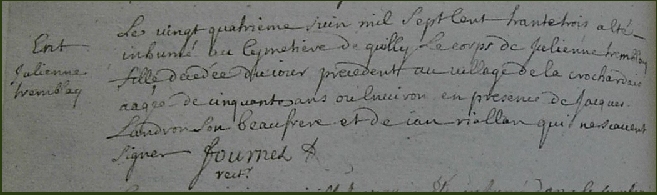 Le vingt quatrieme juin mil sept cent trente trois a été
Ent
inhumé au Cymetiere de quilly Le corps de Julienne tremblay
Julienne
fille decedée du jour precedent au village de la crochardais
tremblay
aagée de cinquante ans ou environ en presence de Jacques
Landron son beaufrere et de jan riallan qui ne scavent
signer fournel
rect.